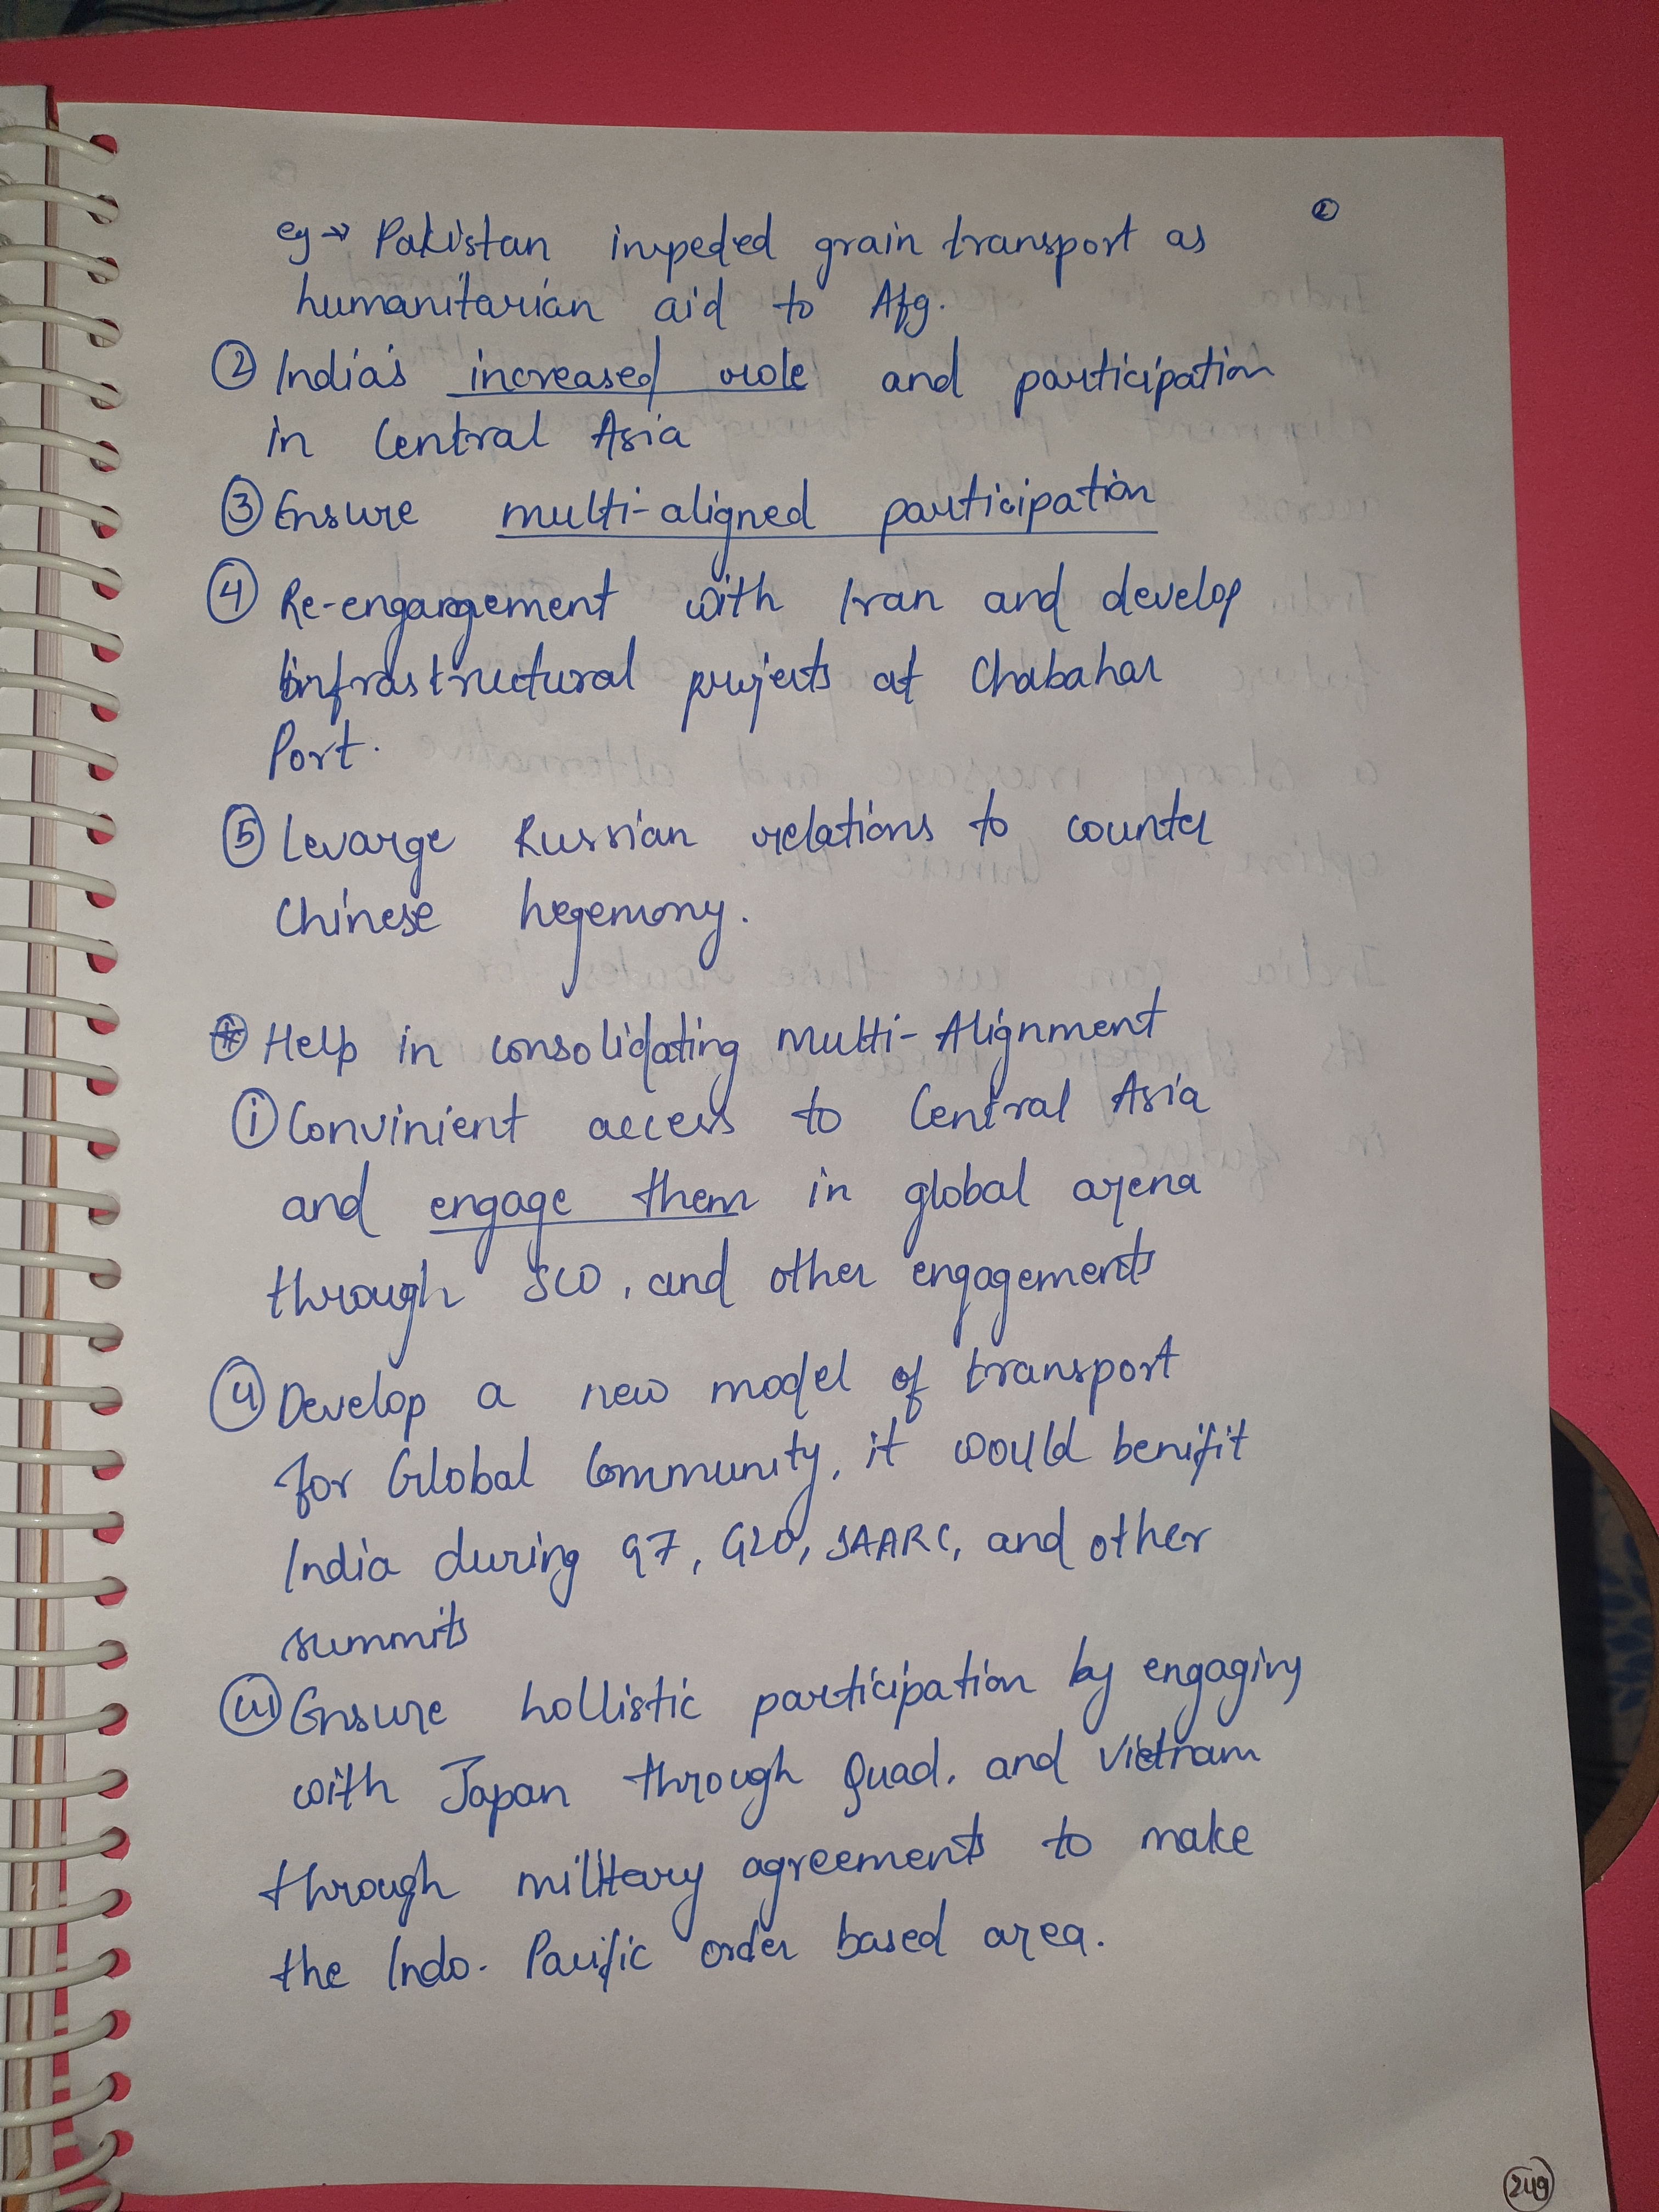 ②
eg → Pakistan impeded grain transport as
humanitarian aid to Afg.
② India's increased role and participation
in Central Asia
③ Ensure multi-aligned participation
④ Re-engargement with Iran and develop
infrastructural projects at Chabahar
Port.
⑤ Levarge Russian relations to counter
Chinese hegemony.
* Help in consolidating Multi-Alignment
(i) Convinient access to Central Asia
and engage them in global arena
through SCO, and other engagements
(ii) Develop a new model of transport
for Global Community, it would benifit
India during G7, G20, SAARC, and other
summits
(iii) Ensure hollistic participation by engaging
with Japan through Quad, and Vietnam
through military agreements to make
the Indo-Pacific order based area.
249